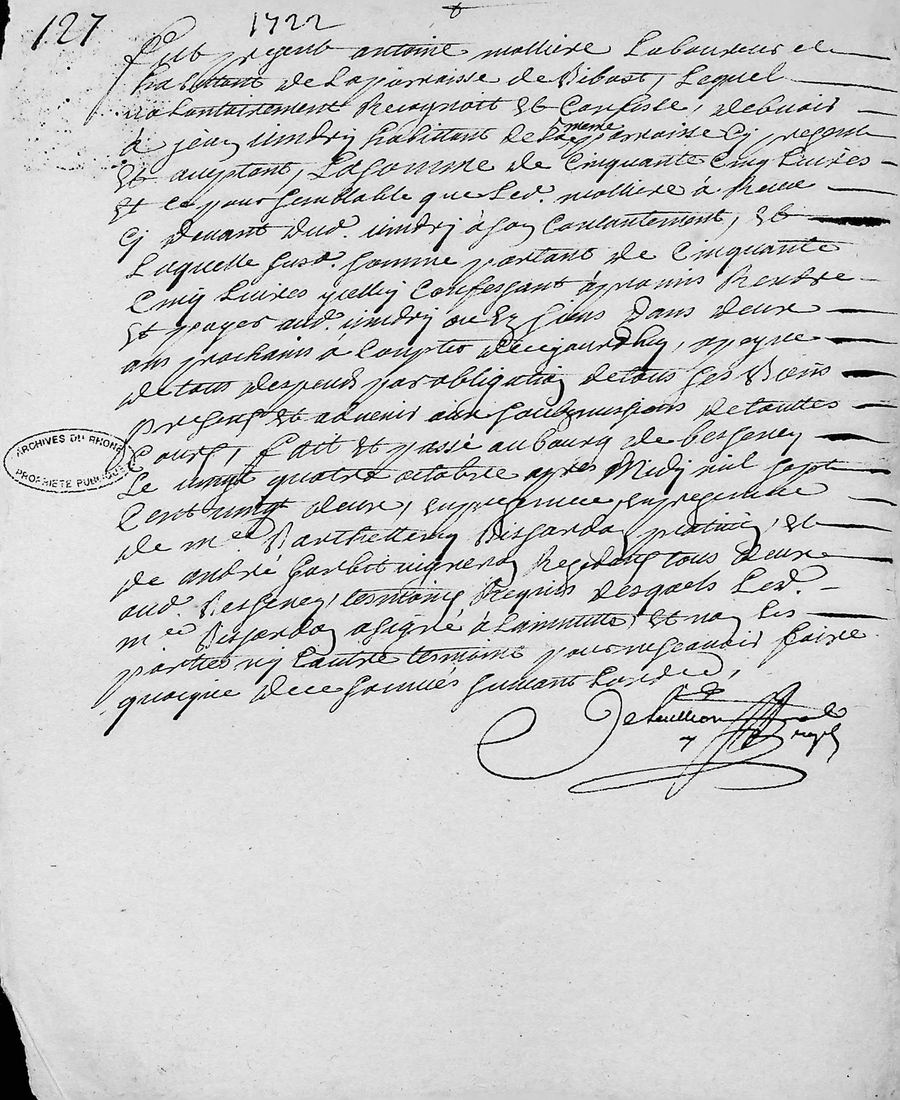 127 1722
fut present antoine mollière Laboureur et
habitant de La parroisse de Ribost, Lequel
volontairement Recognoit Et Confesse, debvoir
à jean habittant de La mesme parroisse Cy present
Et aceptant, La somme de Cinquante Cinq Livres
Et ce pour semblable que Led. mollière à Receu
Cy devant dud. à son Contantement, Et
Laquelle susd. somme portant de Cinquante
Cinq Livres Confessant à promis Rendre
Et payer aud. ou Es siens Dans deux
ans prochains à Compter de cejourdhuy, a peyne
de tous despens par obligation de tous ses Biens
presents Et advenir aux soubmissions de touttes
Cours, fait Et passé au bourg de besseney
Le vingt quatre octobre apres Midy mil sept
Cent vingt deux, en presence, en presence
de me Barthellemy praticien, Et
de andré vigneron Residants tous deux
aud. Besseney, tesmoins Requis desquels Led.
me a signé à La minutte Et non Les
parties ny Lautre tesmoins pour ne sçavoir faire
quoique de ce sommés suivant Lordce,
ARCHIVES DU RHONE
PROPRIETE PUBLIQUE